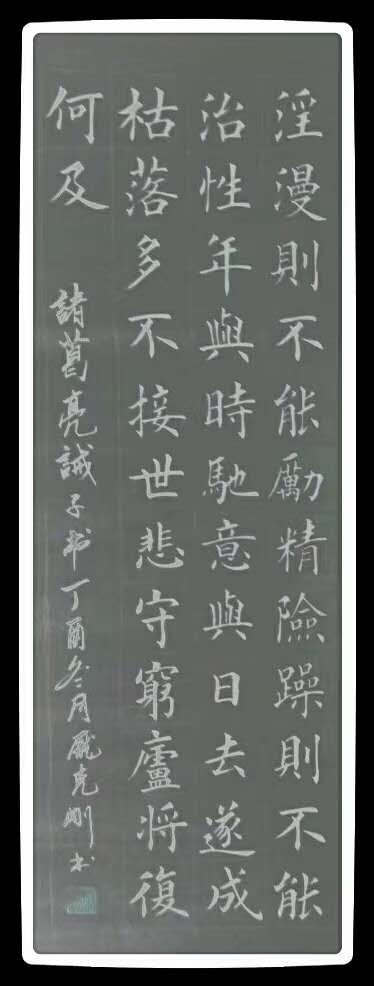 淫漫則不能勵精險躁則不能
治性年與時馳意與日去遂成
枯落多不接世悲守窮廬将復
何及
諸葛亮誡子书丁酉冬月嚴克刚书